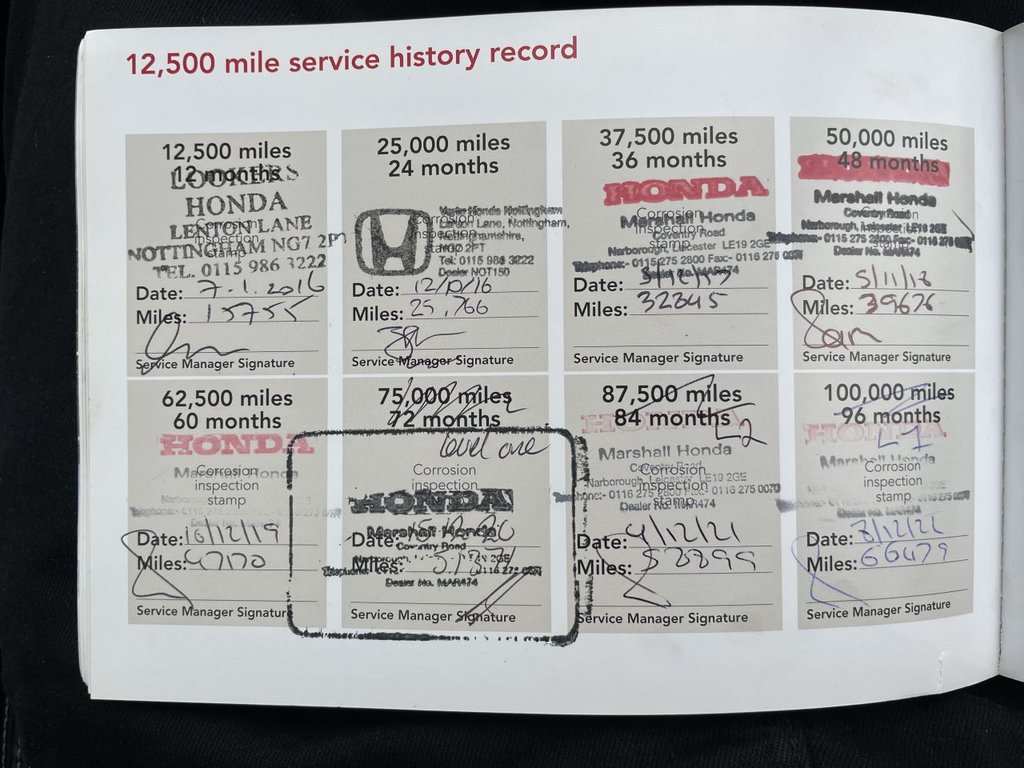 12,500 mile service history record
12,500 miles
12 months
LOOKERS
HONDA
Corrosion
LENTON LANE
inspection
NOTTINGHAM NG7 2P
stamp
TEL. 0115 986 3222
Date: 7.1.2016
Miles: 15755
Service Manager Signature
25,000 miles
24 months
Honda Nottingham
Corrosion
Lane, Nottingham,
inspection
Nottinghamshire,
stamp
NG7 2FT
Tel: 0115 986 3222
Dealer NOT150
Date: 12/10/16
Miles: 25,766
Service Manager Signature
37,500 miles
36 months
HONDA
Marshall Honda
Corrosion
Coventry Road
inspection
Narborough, Leicester LE19 2GE
stamp
Telephone:- 0115 275 2800 Fax:- 0116 275
MAR474
Date:
Miles: 32845
Service Manager Signature
50,000 miles
48 months
Marshall Honda
Coventry Road
Narborough, Leicester LE19 2GE
Telephone:- 0115 275 2800 Fax:- 0116 275
Dealer No. MAR474
Date: 5/11/18
Miles: 39676
Service Manager Signature
62,500 miles
60 months
HONDA
Marshall Honda
Corrosion
inspection
stamp
Date: 10/12/19
Miles: 47170
Service Manager Signature
75,000 miles
72 months
level one
Corrosion
inspection
HONDA
Marshall Honda
Date:
Coventry Road
Miles:
Dealer No. MAR474
Service Manager Signature
87,500 miles
84 months
L2
Marshall Honda
Coventry Road
Corrosion
Narborough, Leicester LE19 2GE
inspection
Telephone:- 0116 275 2800 Fax:- 0116 275 0070
stamp
Dealer No. MAR474
Date: 4/12/21
Miles: 58899
Service Manager Signature
100,000 miles
96 months
L1
Marshall Honda
Corrosion
inspection
stamp
Date: 8/12/22
Miles: 66479
Service Manager Signature